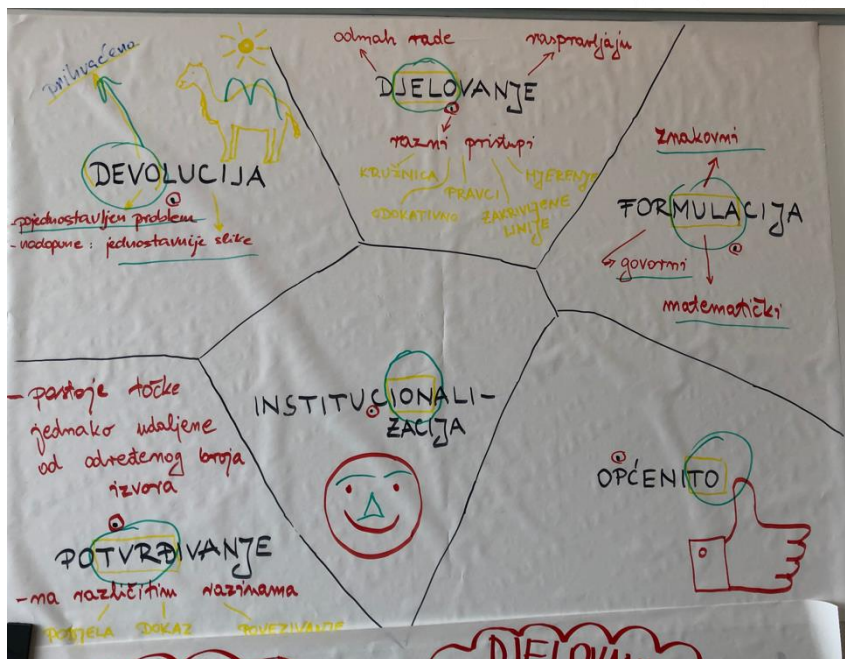 prihvaćeno
DEVOLUCIJA
-pojednostavljen problem
-nadopune: jednostavnije slike
odmah rade
raspravljaju
DJELOVANJE
razni pristupi
KRUŽNICA
MJERENJE
PRAVCI
ODOKATIVNO
ZAKRIVLJENE
LINIJE
znakovni
FORMULACIJA
govorni
matematički
- postoje točke
jednako udaljene
od određenog broja
izvora
POTVRĐIVANJE
-na različitim razinama
PODJELA DOKAZ POVEZIVANJE
INSTITUCIONALI-
ZACIJA
OPĆENITO